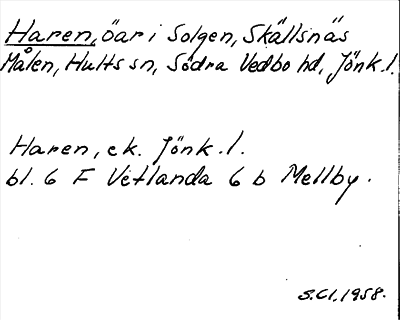 Haren, öar i Solgen, Skällsnäs
Målen, Hults sn, Södra Vedbo hd, Jönk. l.
Haren, ek. Jönk. l.
bl. 6 F Vetlanda 6 b Mellby.
S.Cl. 1958.